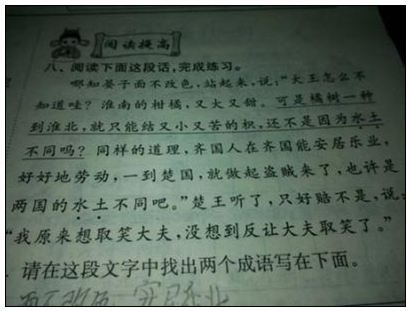 阅读提高
八、阅读下面这段话,完成练习。
哪知晏子面不改色,站起来,说:“大王怎么不
知道哇?淮南的柑橘,又大又甜。可是橘树一种
到淮北,就只能结又小又苦的枳,还不是因为水土
不同吗?同样的道理,齐国人在齐国能安居乐业,
好好地劳动,一到楚国,就做起盗贼来了,也许是
两国的水土不同吧。”楚王听了,只好赔不是,说:
“我原来想取笑大夫,没想到反让大夫取笑了。”
.请在这段文字中找出两个成语写在下面。
面不改色